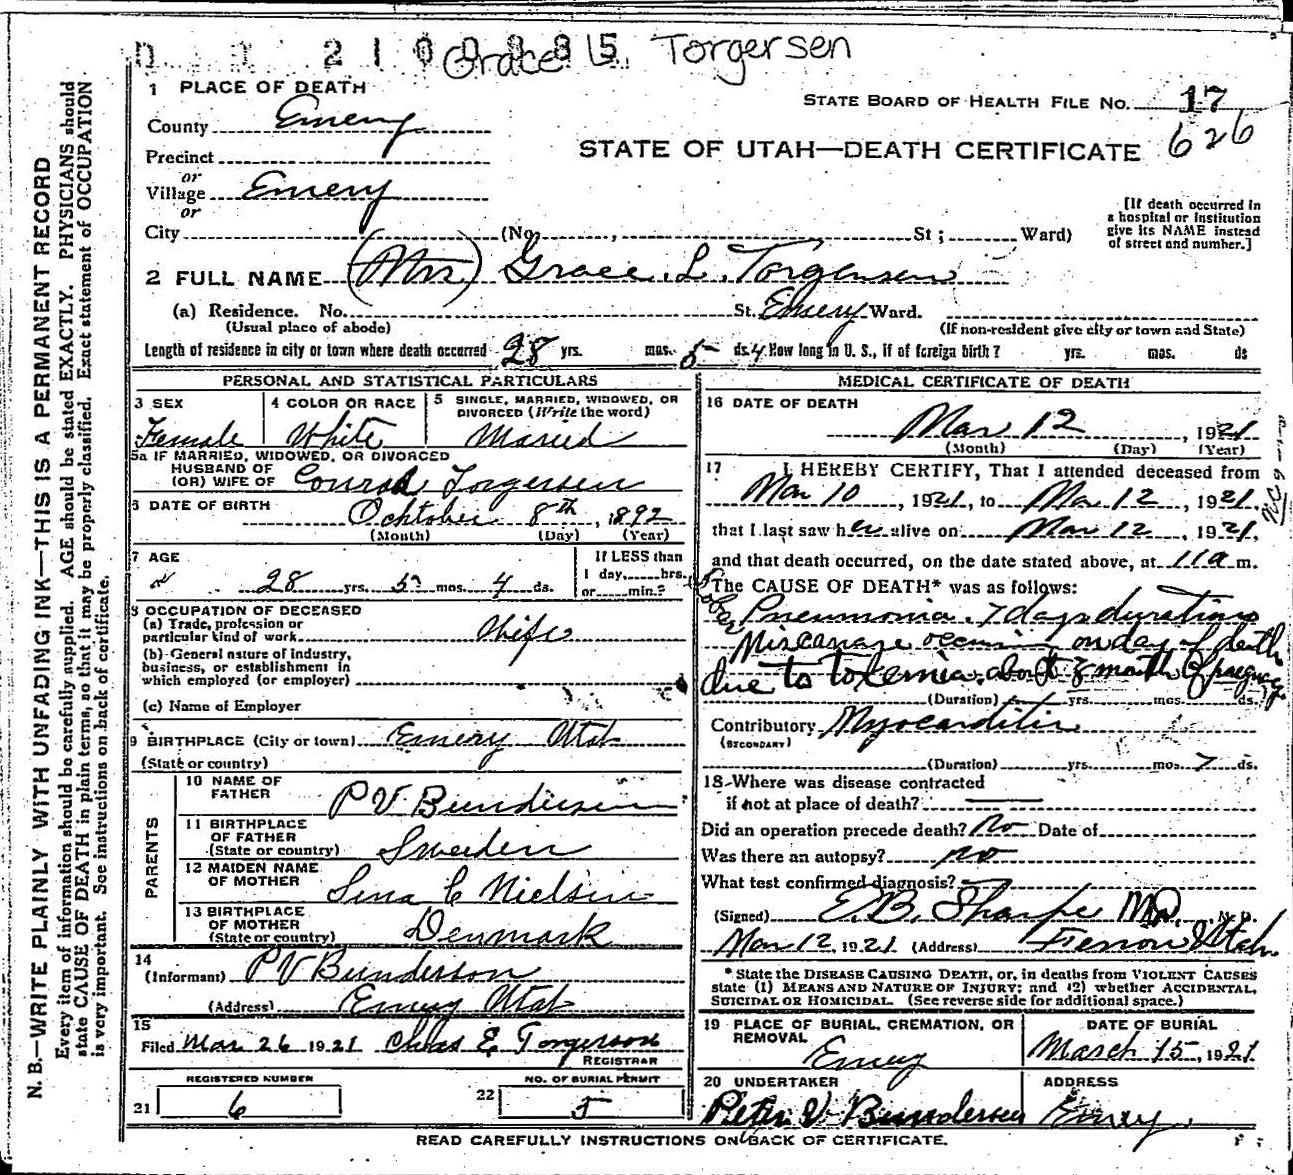 Grace L. Torgersen
1 PLACE OF DEATH
STATE BOARD OF HEALTH FILE NO. 17
County Emery
626
STATE OF UTAH—DEATH CERTIFICATE
Precinct
or
Village Emery
or
City (No. , St ; Ward)
[If death occurred in
a hospital or institution
give its NAME instead
of street and number.]
2 FULL NAME (Mrs) Grace. L. Torgensen
(a) Residence. No. St. Emery Ward.
(Usual place of abode) (If non-resident give city or town and State)
Length of residence in city or town where death occurred 28 yrs. mos. 5 ds. 4 How long in U. S., if of foreign birth? yrs. mos. ds
PERSONAL AND STATISTICAL PARTICULARS
3 SEX 4 COLOR OR RACE 5 SINGLE, MARRIED, WIDOWED, OR
DIVORCED (Write the word)
Female White Maried
5a IF MARRIED, WIDOWED, OR DIVORCED
HUSBAND OF
(OR) WIFE OF Conrad Torgersen
6 DATE OF BIRTH Ochtober 8th, 1892
(Month) (Day) (Year)
7 AGE If LESS than
1 day, hrs.
28 yrs. 5 mos. 4 ds. or min.?
8 OCCUPATION OF DECEASED
(a) Trade, profession or
particular kind of work Wife
(b) General nature of industry,
business, or establishment in
which employed (or employer)
(c) Name of Employer
9 BIRTHPLACE (City or town) Emery Utah
(State or country)
PARENTS
10 NAME OF
FATHER P V Bunderson
11 BIRTHPLACE
OF FATHER
(State or country) Sweden
12 MAIDEN NAME
OF MOTHER Sena C Nielsen
13 BIRTHPLACE
OF MOTHER
(State or country) Denmark
14
(Informant) P V Bunderson
(Address) Emery Utah
15
Filed Mar 26 1921 Chas E. Torgerson
REGISTRAR
REGISTERED NUMBER NO. OF BURIAL PERMIT
21 6 22 5
MEDICAL CERTIFICATE OF DEATH
16 DATE OF DEATH
Mar 12, 1921
(Month) (Day) (Year)
17 I HEREBY CERTIFY, That I attended deceased from
Mar 10, 1921, to Mar 12, 1921.
that I last saw her alive on Mar 12, 1921,
and that death occurred, on the date stated above, at 11a m.
The CAUSE OF DEATH* was as follows:
Lobar Pneumonia. 7 days duration
Miscarriage on day of death
due to toxemia. about 8 month of pregnancy
(Duration) yrs. mos. ds.
Contributory Myocarditis
(SECONDARY)
(Duration) yrs. mos. 7 ds.
18-Where was disease contracted
if not at place of death?
Did an operation precede death? No Date of
Was there an autopsy? no
What test confirmed diagnosis?
(Signed) E. B. Sharpe MD. M. D.
Mar 12, 1921 (Address) Ferron Utah
* State the DISEASE CAUSING DEATH, or, in deaths from VIOLENT CAUSES
state (1) MEANS AND NATURE OF INJURY; and (2) whether ACCIDENTAL,
SUICIDAL OR HOMICIDAL. (See reverse side for additional space.)
19 PLACE OF BURIAL, CREMATION, OR
REMOVAL DATE OF BURIAL
Emery March 15, 1921
20 UNDERTAKER ADDRESS
Peter V Bunderson Emery.
READ CAREFULLY INSTRUCTIONS ON BACK OF CERTIFICATE.
N. B.—WRITE PLAINLY WITH UNFADING INK—THIS IS A PERMANENT RECORD
Every item of information should be carefully supplied. AGE should be stated EXACTLY. PHYSICIANS should
state CAUSE OF DEATH in plain terms, so that it may be properly classified. Exact statement of OCCUPATION
is very important. See instructions on back of certificate.